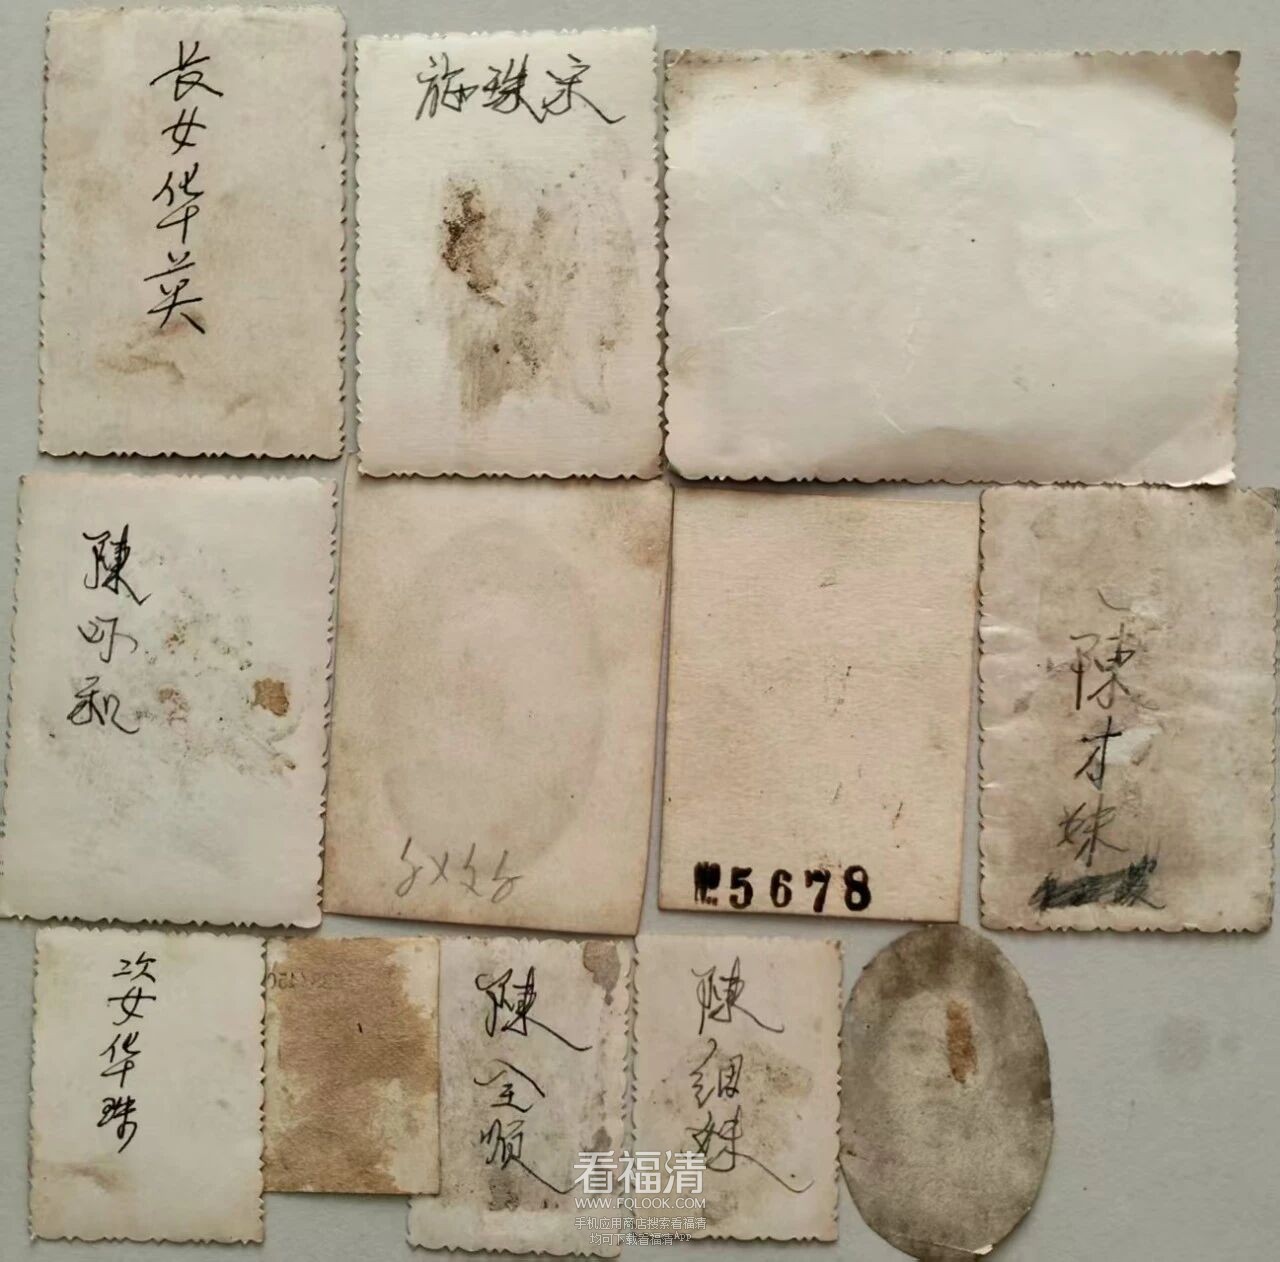 长女华英
施珠宋
陳
№ 5678
陳才妹
次女华珠
陳全順
陳細妹
看福清
WWW.FQLOOK.COM
手机应用商店搜索看福清
均可下载看福清App